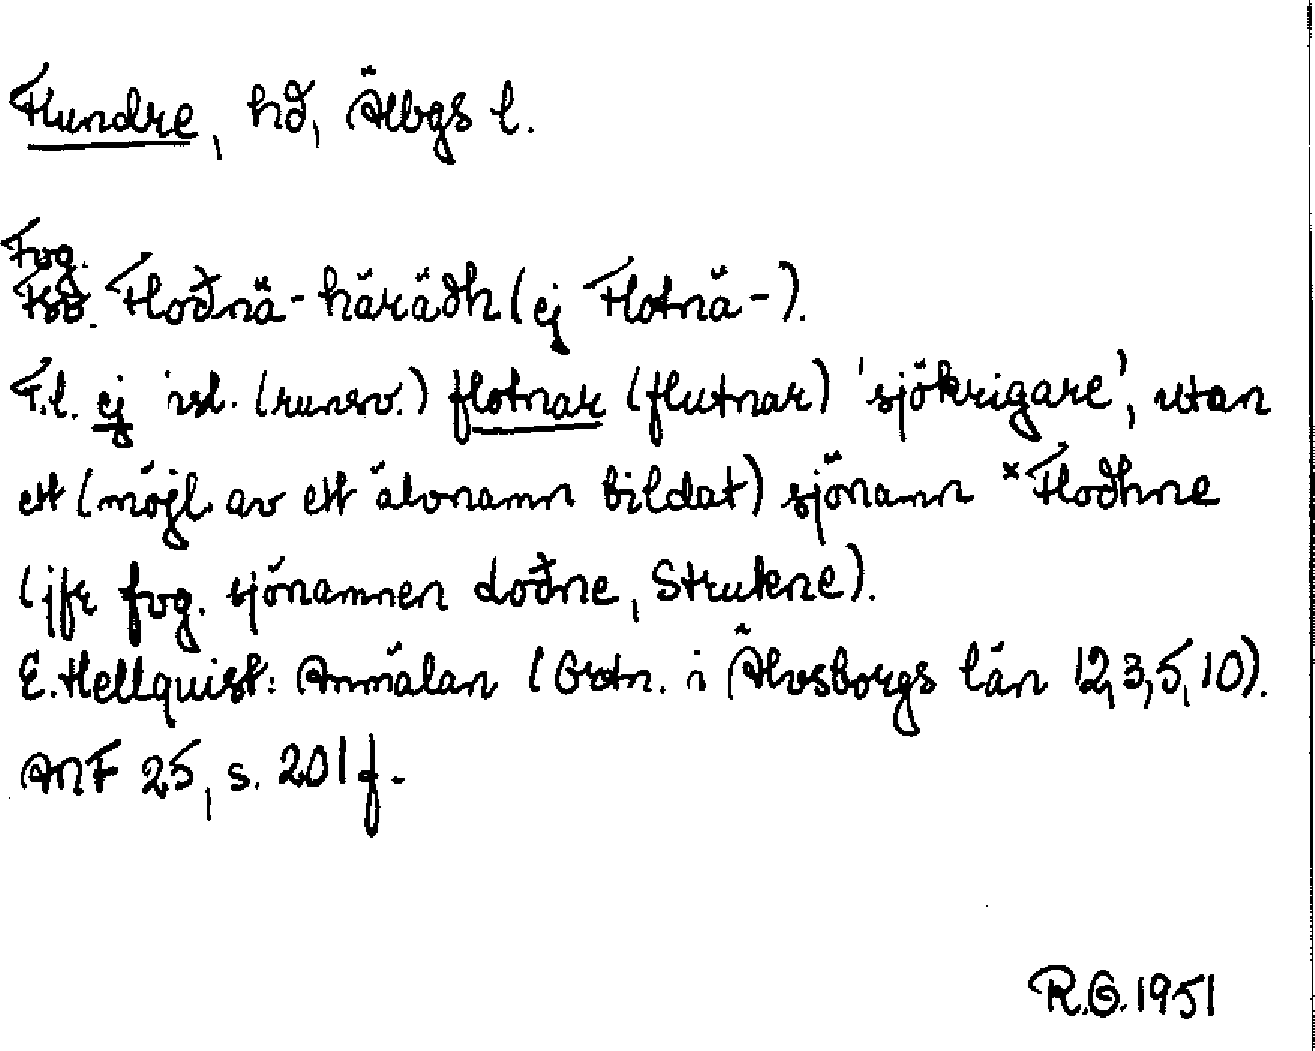 Flundre, hd, Älbgs l.
Fvg.
Fsv. Floðnä-härädh (ej Flotnä-).
F.l. ej isl. (runsv.) flotnar (flutnar) 'sjökrigare', utan
ett (möjl. av ett älvnamn bildat) sjönamn *Floðhne
(jfr fvg. sjönamnen Loðne, Strukne).
E. Hellquist: Anmälan (Ortn. i Älvsborgs län 12, 3, 5, 10).
ANF 25, s. 201 f.
R.G. 1951